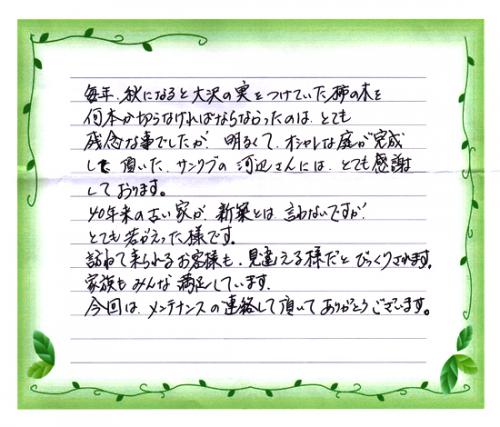 毎年、秋になると大沢の実をつけていた柿の木を
何本か切らなければならなかったのは、とても
残念な事でしたが、明るくて、オシャレな庭が完成
して頂いた、サンクブの河辺さんには、とても感謝
しております。
40年来の古い家が、新築とは言わないですが、
とても若がえった様です。
訪ねて来られるお客様も、見違える様だとびっくりされます。
家族もみんな満足しています。
今回は、メンテナンスの連絡して頂いてありがとうございます。